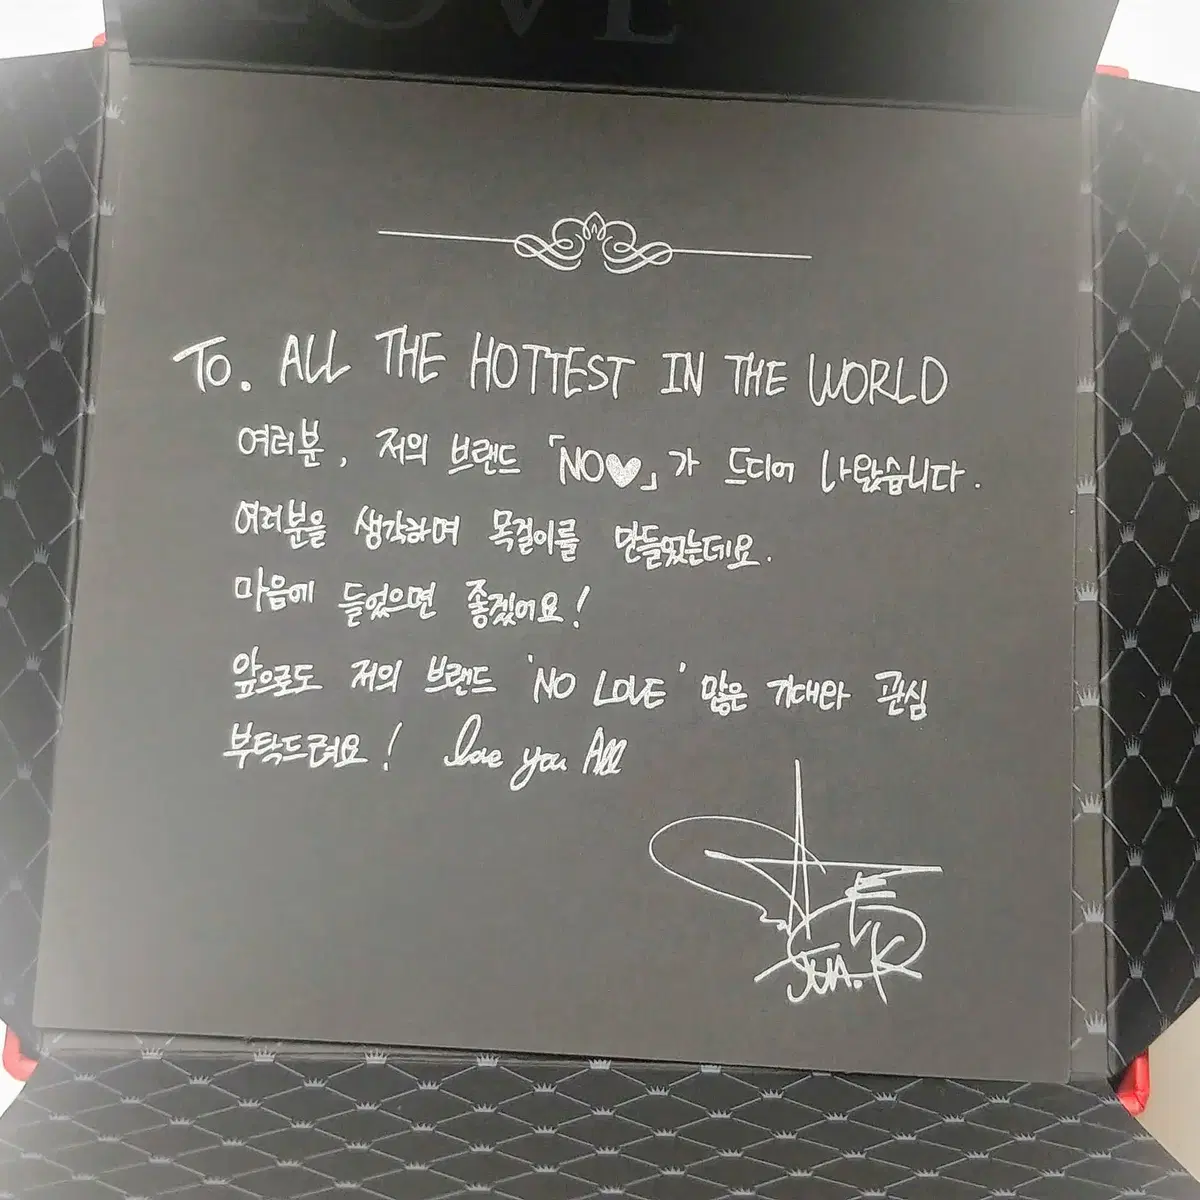 LOVE
To. ALL THE HOTTEST IN THE WORLD
여러분, 저의 브랜드 「NO♥」가 드디어 나왔습니다.
여러분을 생각하며 목걸이를 만들었는데요.
마음에 들었으면 좋겠어요!
앞으로도 저의 브랜드 'NO LOVE' 많은 기대와 관심
부탁드려요! love you All
JUN. K